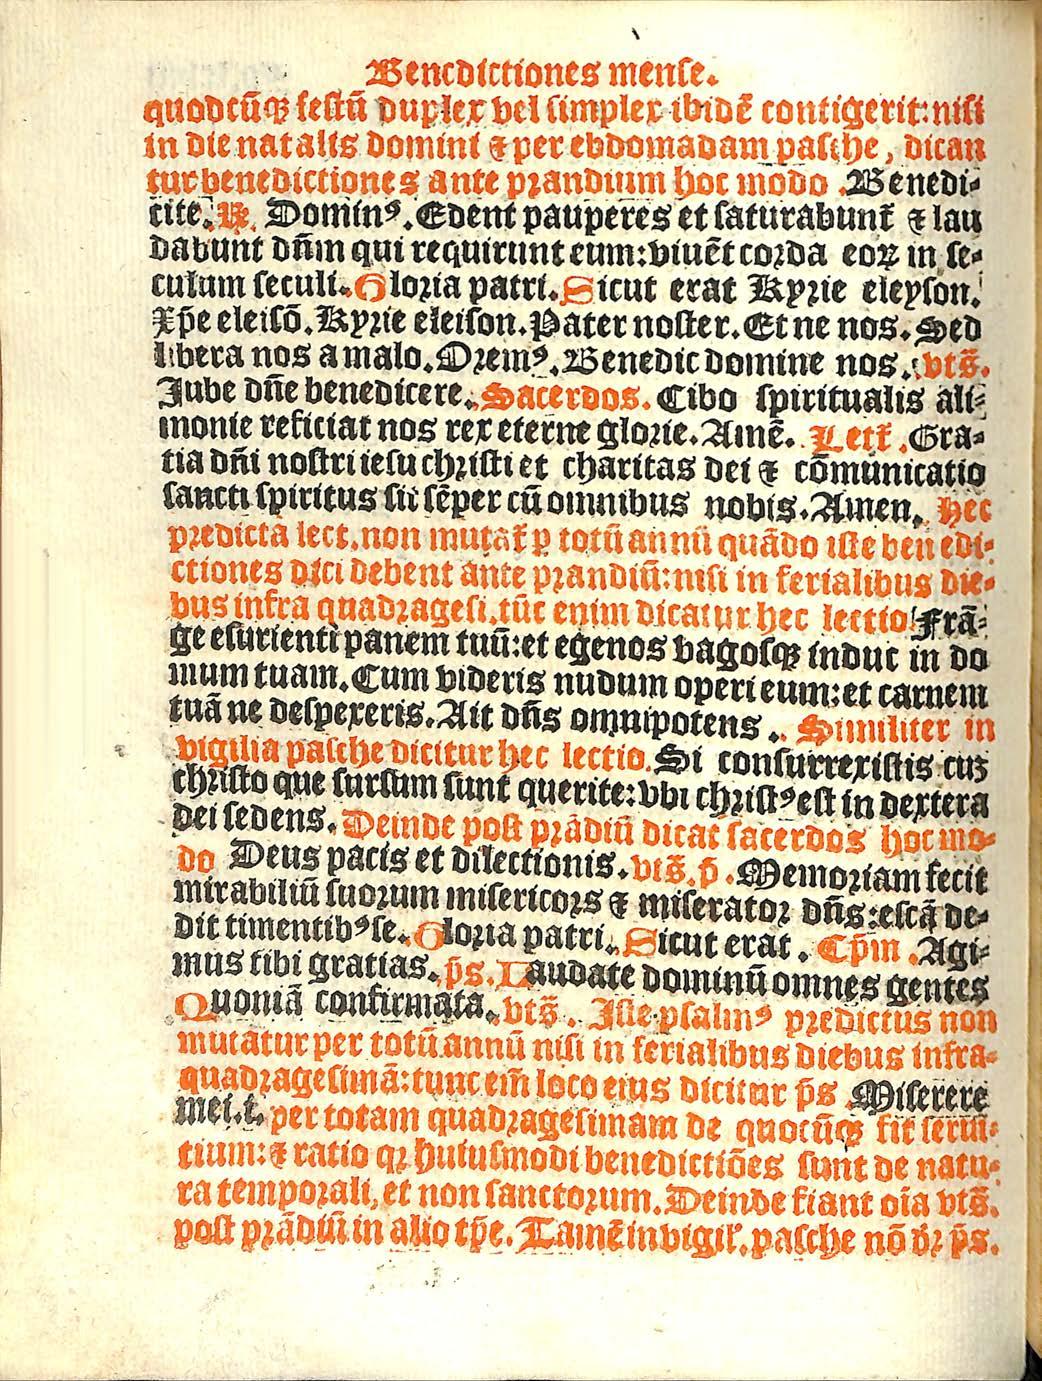 Benedictiones mense.
quodcūqꝫ festū duplex vel simplex ibidē contigerit: nisi
in die natalis domini ⁊ per ebdomadam pasche, dican
tur benedictiones ante prandium hoc modo. Benedi-
cite. ℟. Dominꝰ. Edent pauperes et saturabunt̄ ⁊ lau
dabunt dn̄m qui requirunt eum: viuēt corda eoꝝ in se-
culum seculi. Gloria patri. Sicut erat Kyrie eleyson.
Xp̄e eleisō. Kyrie eleison. Pater noster. Et ne nos. Sed
libera nos a malo. Oremꝰ. Benedic domine nos. vts̄.
Jube dn̄e benedicere. Sacerdos. Cibo spiritualis ali-
monie reficiat nos rex eterne glorie. Amē. Lect̄. Gra-
tia dn̄i nostri iesu christi et charitas dei ⁊ cōmunicatio
sancti spiritus sit sēper cū omnibus nobis. Amen. Hec
predicta lect. non mutat̄ ꝑ totū annū quādo iste benedi-
ctiones dici debent ante prandiū: nisi in ferialibus die-
bus infra quadragesi. tūc enim dicatur hec lectio Frā-
ge esurienti panem tuū: et egenos vagosqꝫ induc in do
mum tuam. Cum videris nudum operi eum: et carnem
tuā ne despexeris. Ait dn̄s omnipotens. Similiter in
vigilia pasche dicitur hec lectio. Si consurrexistis cuꝫ
christo que sursum sunt querite: vbi christꝰ est in dextera
dei sedens. Deinde post prādiū dicat sacerdos hoc mo-
do Deus pacis et dilectionis. vts̄. p̄. Memoriam fecit
mirabiliū suorum misericors ⁊ miserator dn̄s: escā de-
dit timentibꝰ se. Gloria patri. Sicut erat. Cp̄m. Agi-
mus tibi gratias. p̄s. Laudate dominū omnes gentes
Quoniā confirmata. vts̄. Iste psalmꝰ predictus non
mutatur per totū annū nisi in ferialibus diebus infra-
quadragesimā: tunc em̄ loco eius dicitur p̄s Miserere
mei. ⁊. per totam quadragesimam de quocūqꝫ fit serui-
tium: ⁊ ratio qꝛ huiusmodi benedictiōes sunt de natu-
ra temporali, et non sanctorum. Deinde fiant oīa vts̄.
post prādiū in alio tp̄e. Tamē in vigil̓. pasche nō dr̄ p̄s.